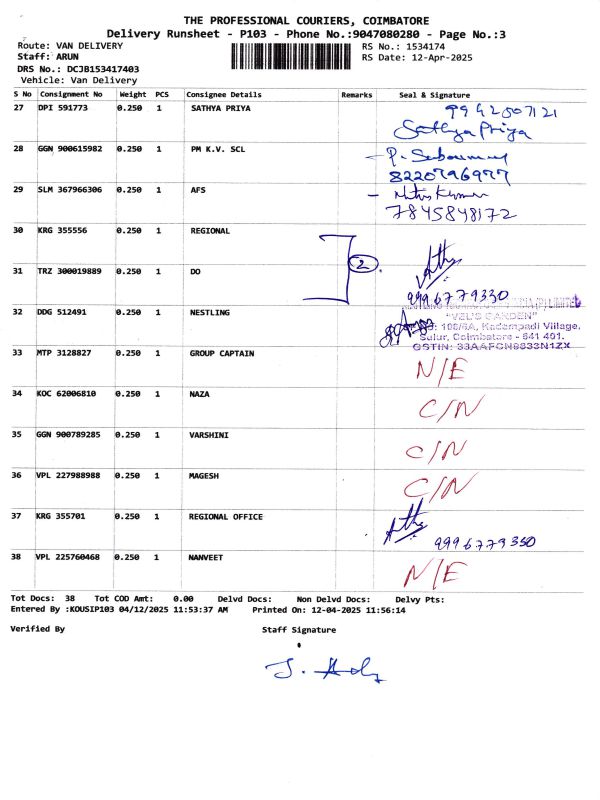 THE PROFESSIONAL COURIERS, COIMBATORE
Delivery Runsheet - P103 - Phone No.:9047080280 - Page No.:3
Route: VAN DELIVERY RS No.: 1534174
Staff: ARUN RS Date: 12-Apr-2025
DRS No.: DCJB153417403
Vehicle: Van Delivery
S No Consignment No Weight PCS Consignee Details Remarks Seal & Signature
27 DPI 591773 0.250 1 SATHYA PRIYA 9942507121
Sathya Priya
28 GGN 900615982 0.250 1 PM K.V. SCL
8220796977
29 SLM 367966306 0.250 1 AFS
7845848172
30 KRG 355556 0.250 1 REGIONAL
2
31 TRZ 300019889 0.250 1 DO
9996779330
32 DDG 512491 0.250 1 NESTLING
(P) LIMITED
"VEL'S GARDEN"
100/6A, Kadampadi Village,
Sulur, Coimbatore - 641 401.
GSTIN: 33AAFCN9833N1ZX
33 MTP 3128827 0.250 1 GROUP CAPTAIN N/E
34 KOC 62006810 0.250 1 NAZA C/N
35 GGN 900789285 0.250 1 VARSHINI C/N
36 VPL 227988988 0.250 1 MAGESH C/N
37 KRG 355701 0.250 1 REGIONAL OFFICE
9996779330
38 VPL 225760468 0.250 1 NANVEET N/E
Tot Docs: 38 Tot COD Amt: 0.00 Delvd Docs: Non Delvd Docs: Delvy Pts:
Entered By :KOUSIP103 04/12/2025 11:53:37 AM Printed On: 12-04-2025 11:56:14
Verified By Staff Signature